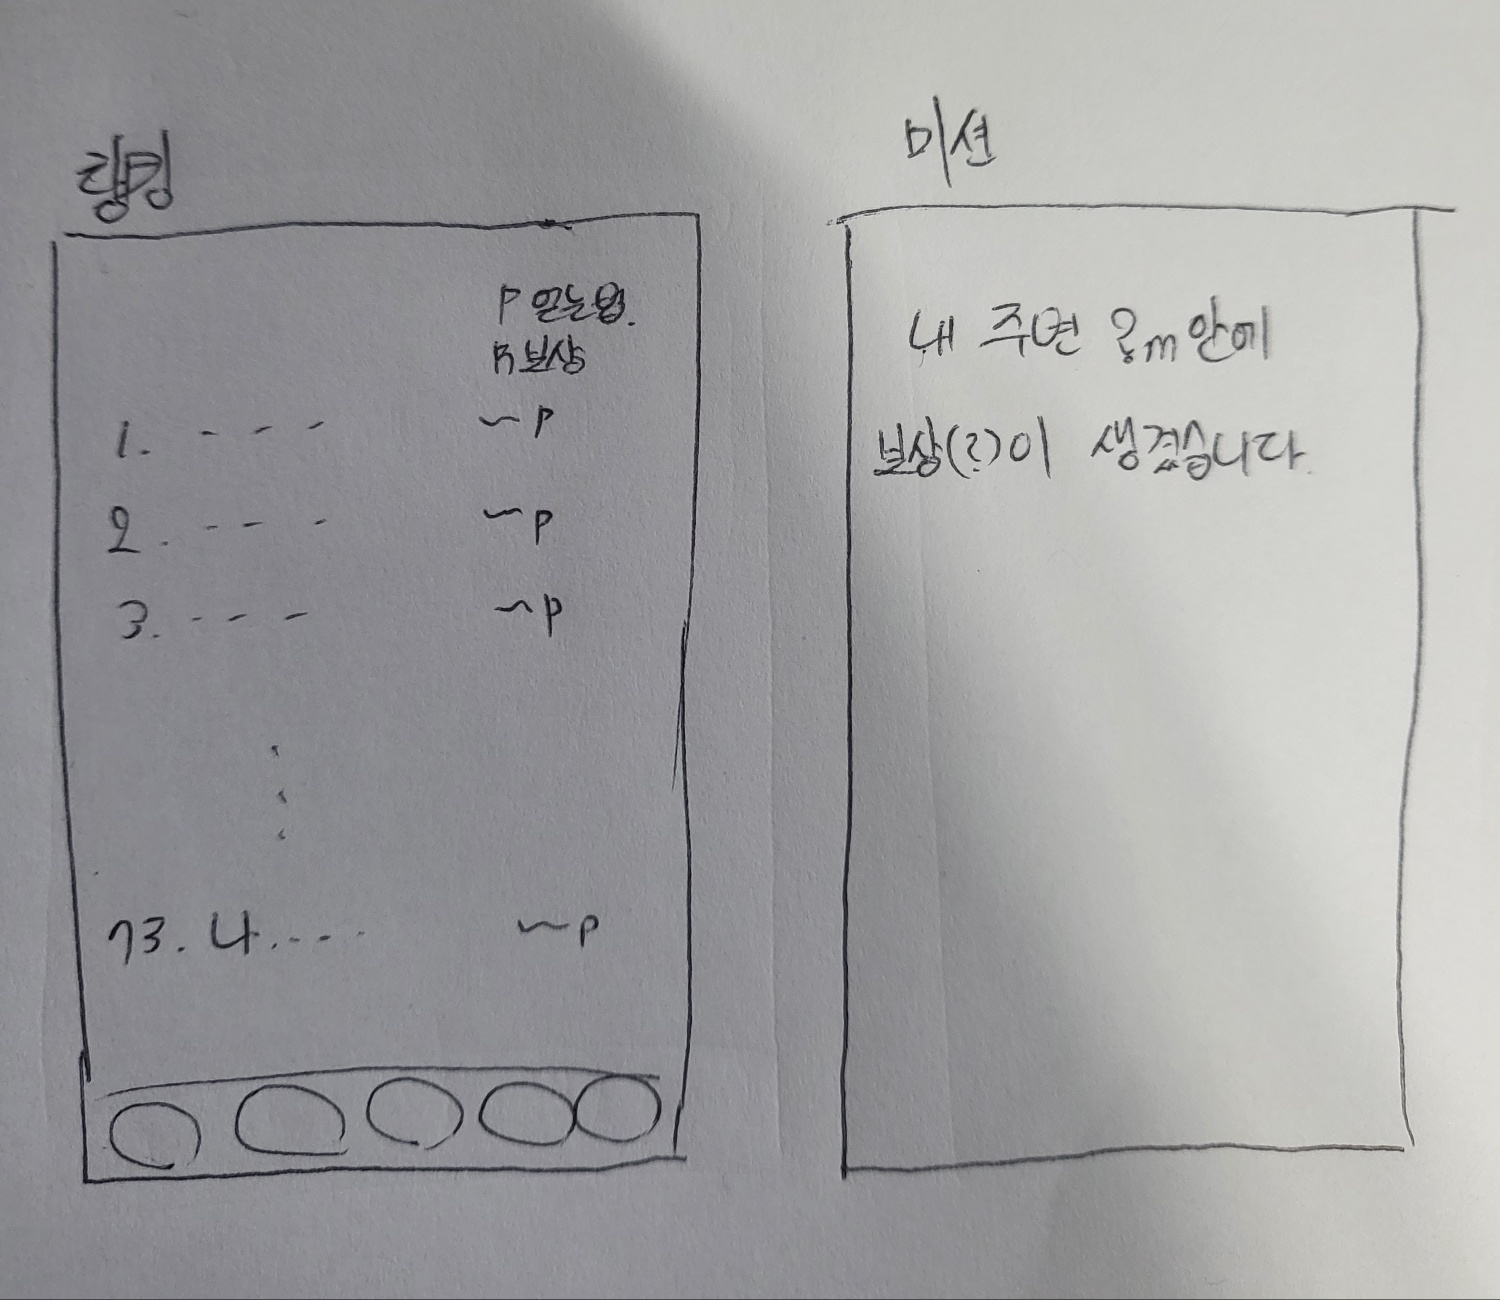 랭킹
P 얻는법.
P 보상
1. - - - ~P
2. - - - ~P
3. - - - ~P
73. 나. - - - ~P
미션
내 주변 ?m 안에
보상(?)이 생겼습니다.